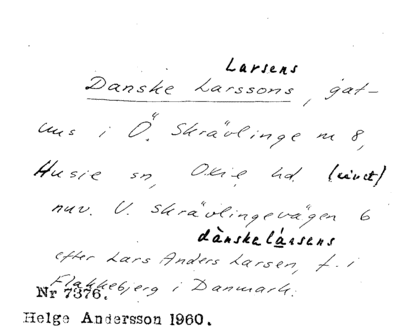 Larsens
Danske Larssons, gat-
hus i Ö. Skrävlinge nr 8,
Husie sn, Oxie hd. (rivet)
nuv. V. Skrävlingevägen 6
dànskelársens
efter Lars Anders Larsen, f. i
Flakkebjerg i Danmark.
Nr 7376.
Helge Andersson 1960.